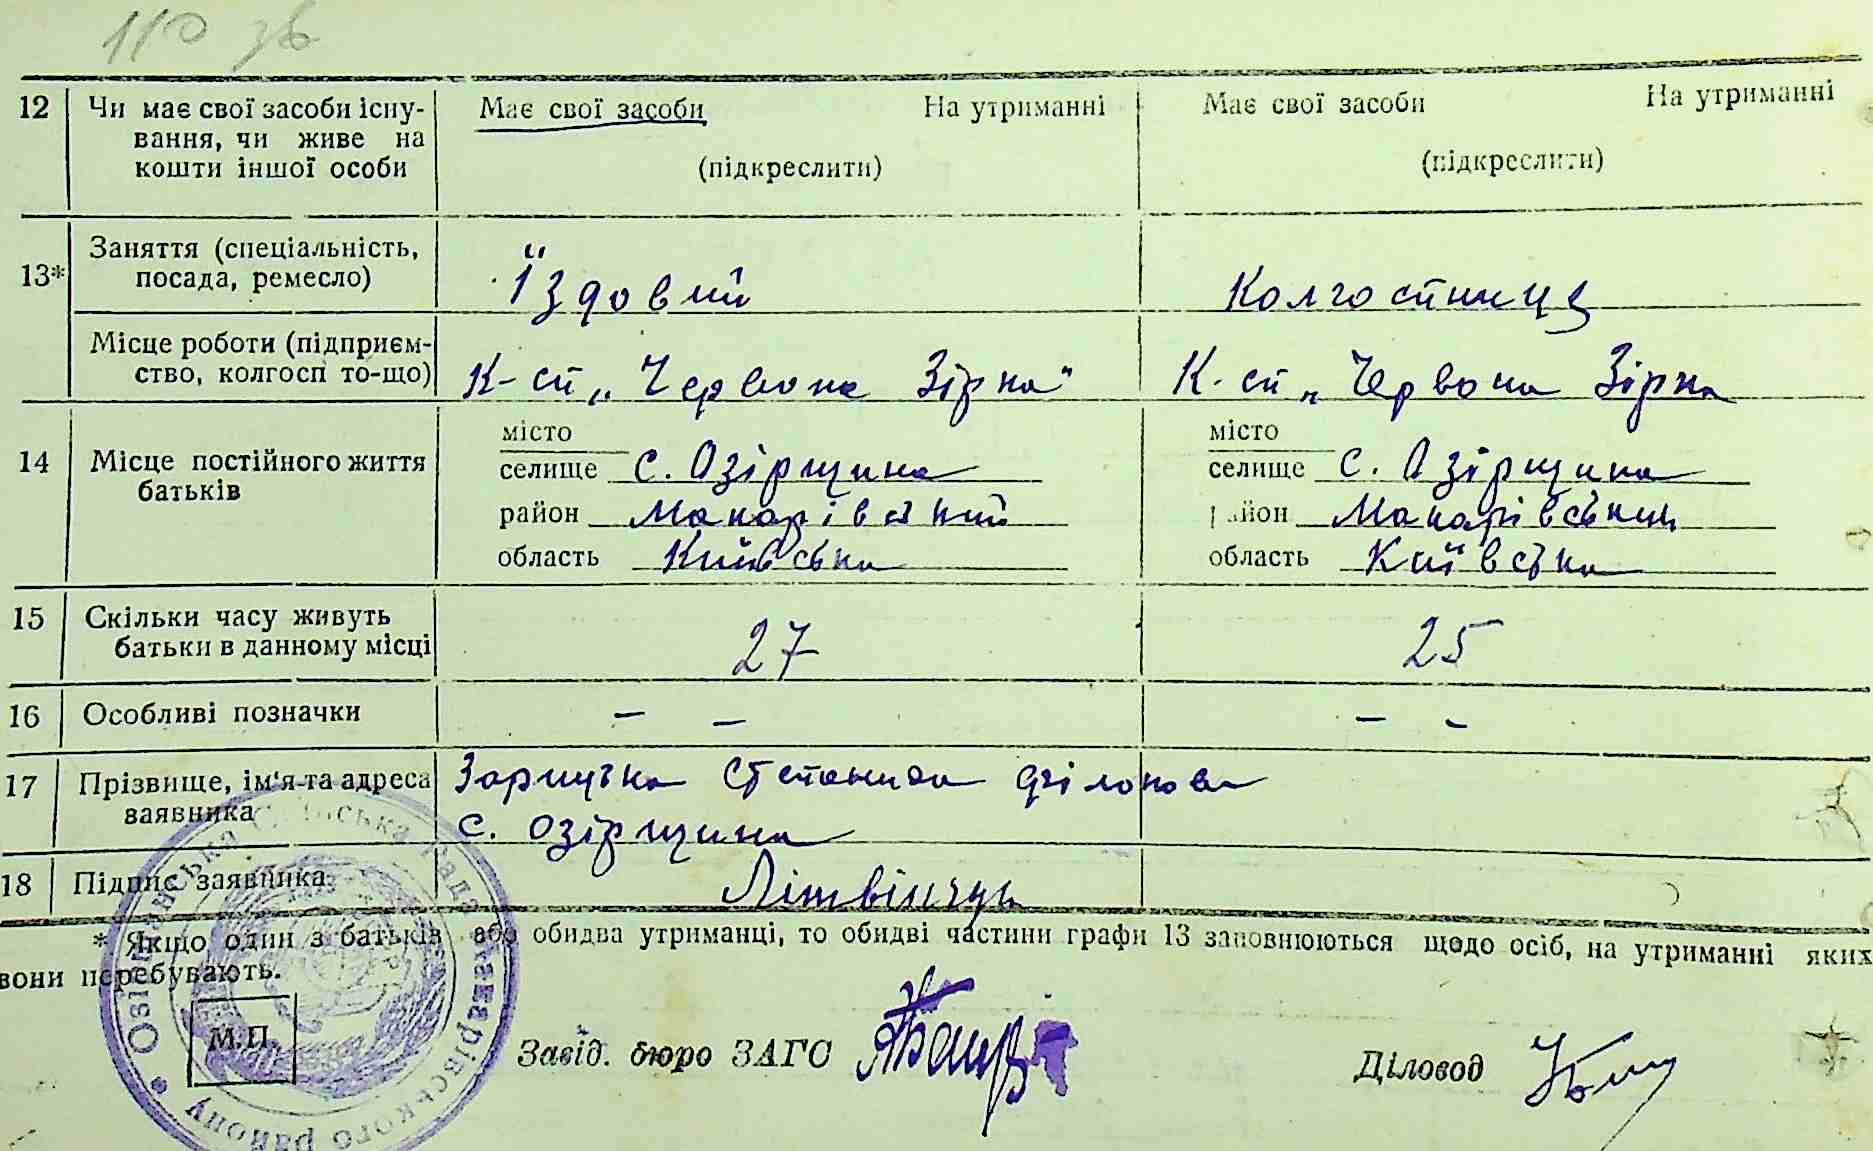 110 зв
12 Чи має свої засоби існу-
вання, чи живе на
кошти іншої особи
Має свої засоби На утриманні
(підкреслити)
Має свої засоби На утриманні
(підкреслити)
13* Заняття (спеціальність,
посада, ремесло)
Їздовий
Колгоспниця
Місце роботи (підприєм-
ство, колгосп то-що)
К-сп „Червона Зірка"
К-сп „Червона Зірка
14 Місце постійного життя
батьків
місто
селище с. Озірщина
район Макарівський
область Київська
місто
селище с. Озірщина
район Макарівський
область Київська
15 Скільки часу живуть
батьки в данному місці
27
25
16 Особливі позначки
– –
– –
17 Прізвище, ім'я та адреса
заявника
Степанида
с. Озірщина
18 Підпис заявника
Літвінчук
* Якщо один з батьків або обидва утриманці, то обидві частини графи 13 заповнюються щодо осіб, на утриманні яких
вони перебувають.
М.П.
Завід. бюро ЗАГС
Діловод
Озірщинська сільська рада Макарівського району